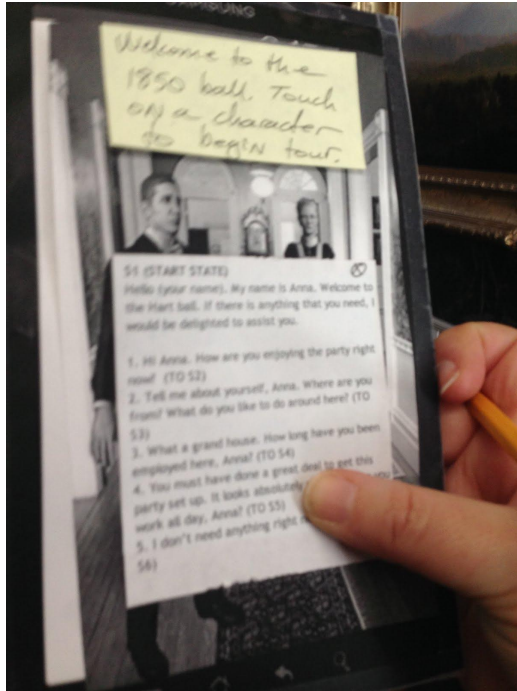 SAMSUNG
Welcome to the
1850 ball. Touch
on a character
to begin tour.
S1 (START STATE)
Hello (your name). My name is Anna. Welcome to
the Hart ball. If there is anything that you need, I
would be delighted to assist you.
1. Hi Anna. How are you enjoying the party right
now? (TO S2)
2. Tell me about yourself, Anna. Where are you
from? What do you like to do around here? (TO
S3)
3. What a grand house. How long have you been
employed here, Anna? (TO S4)
4. You must have done a great deal to get this
party set up. It looks absolutely you
work all day, Anna? (TO S5)
5. I don't need anything right
S6)